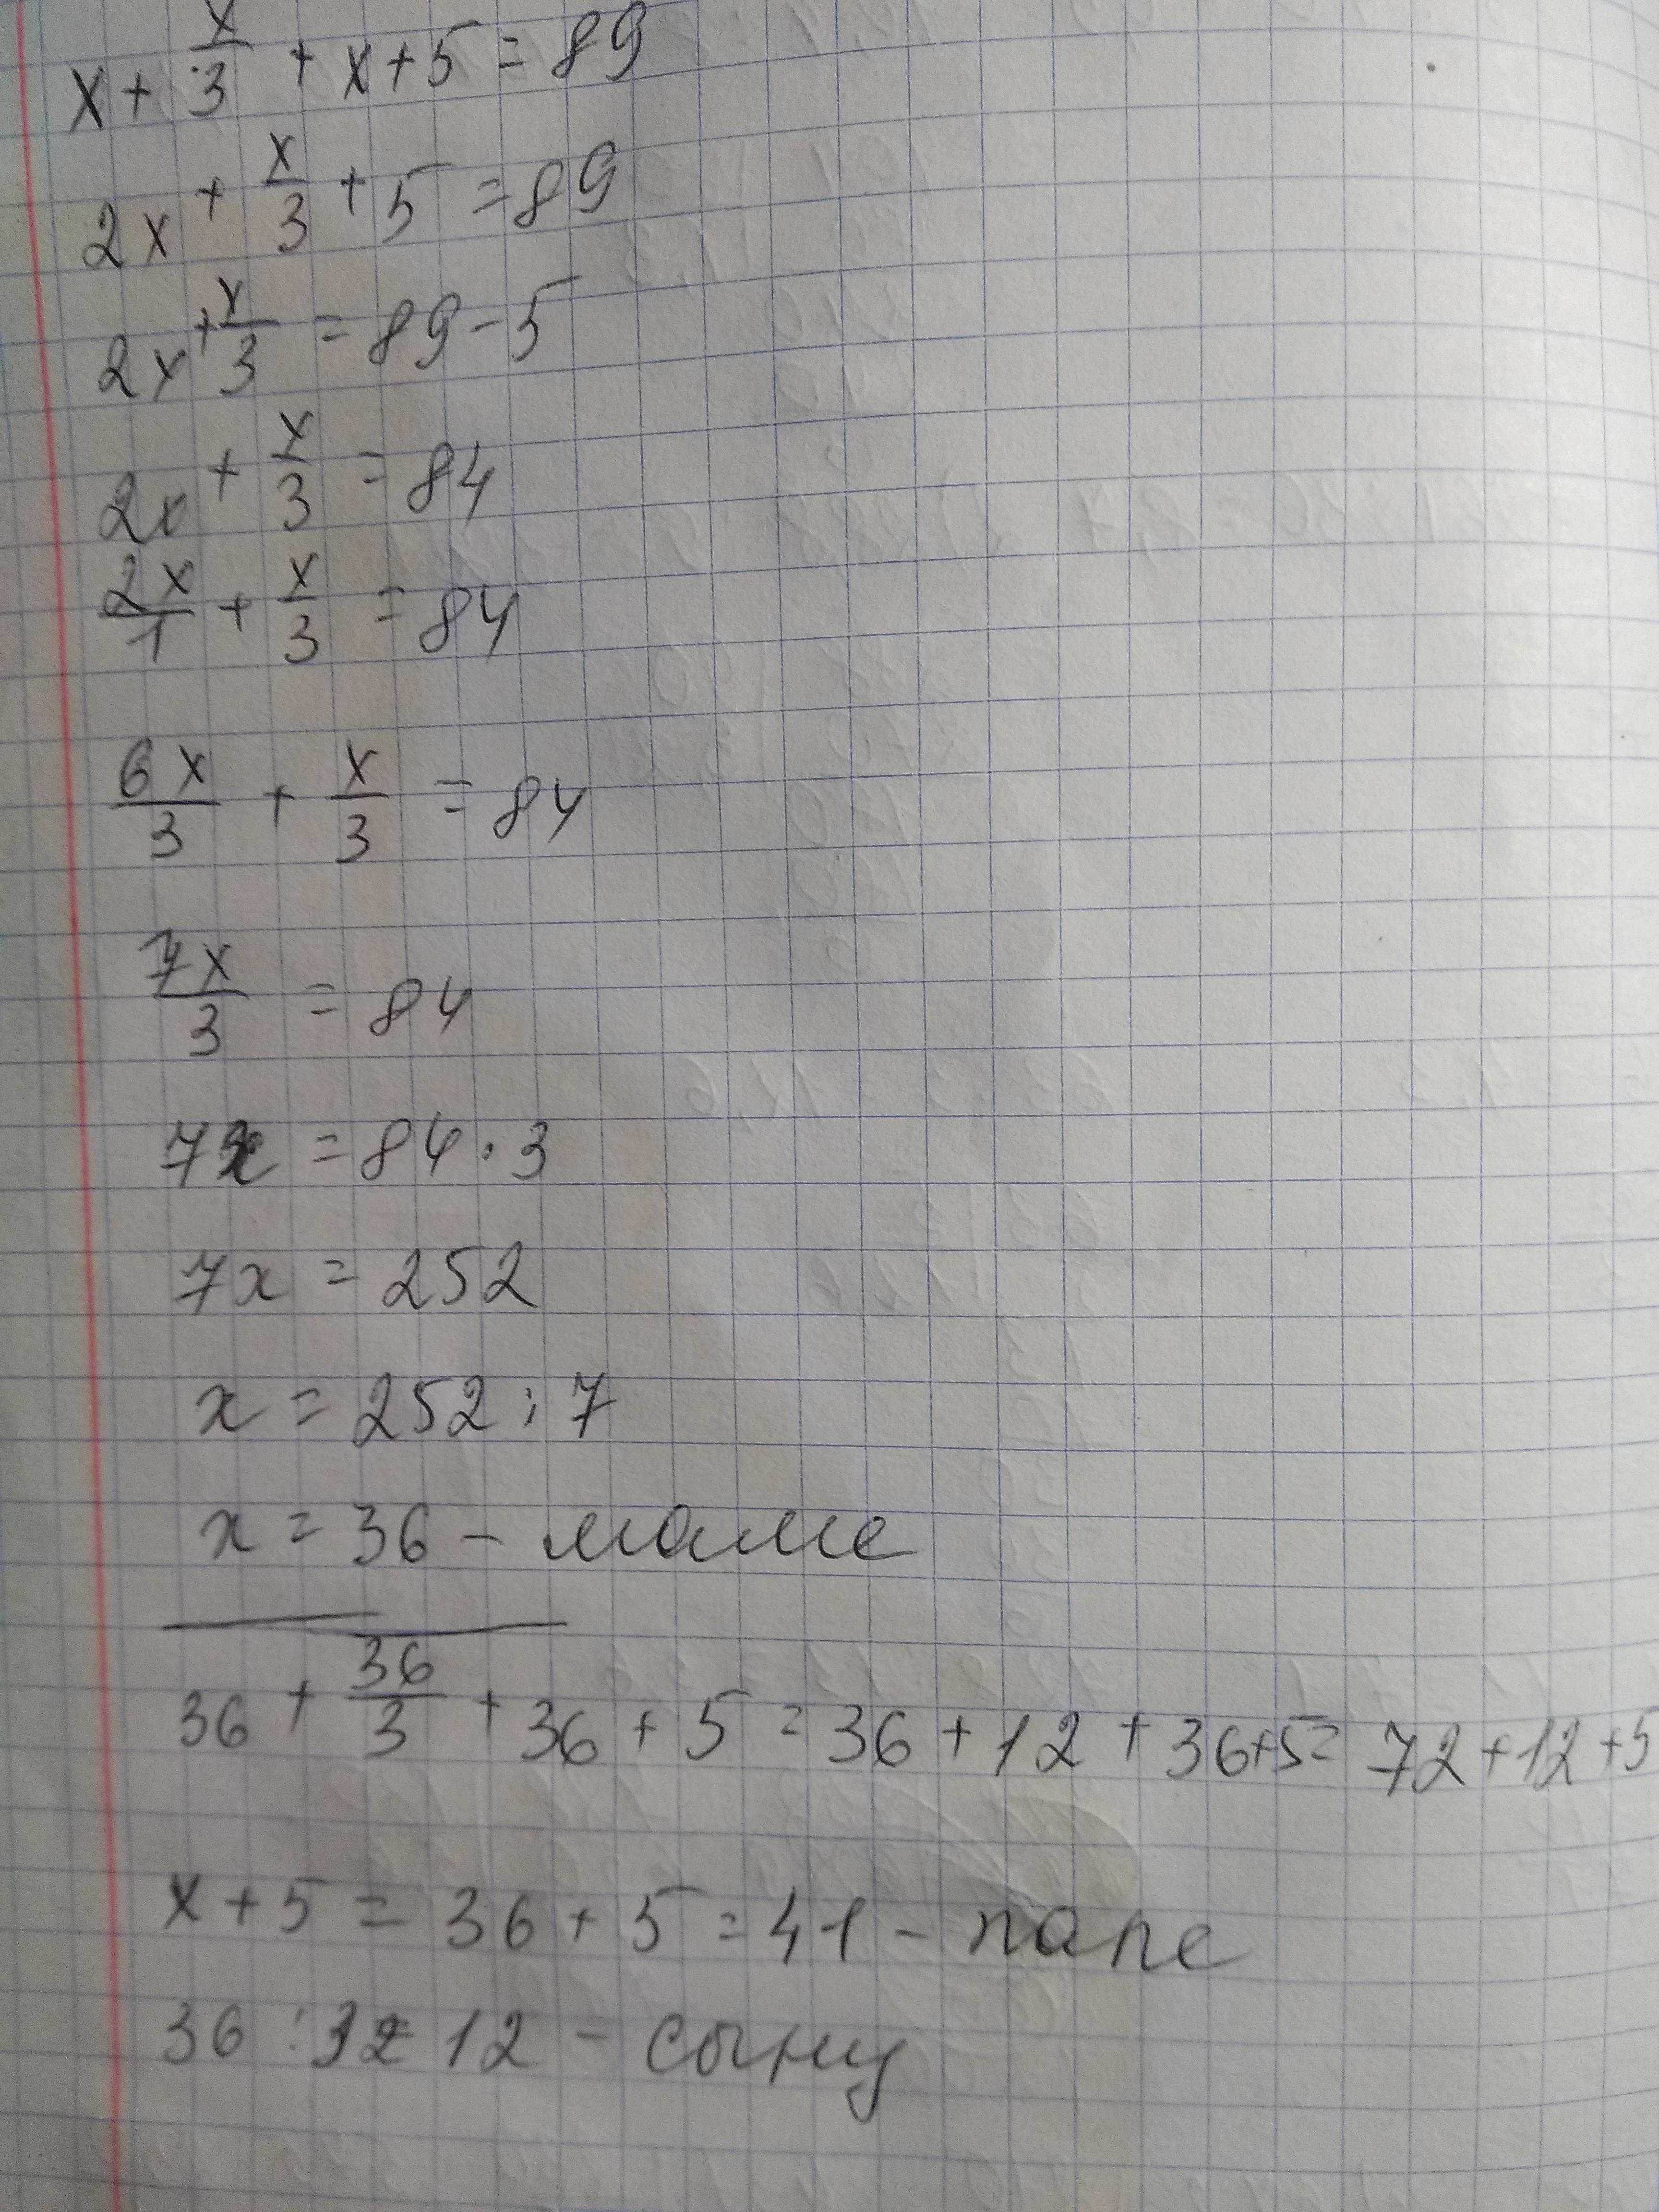 x + x/3 + x + 5 = 89
2x + x/3 + 5 = 89
2x + x/3 = 89 - 5
2x + x/3 = 84
2x/1 + x/3 = 84
6x/3 + x/3 = 84
7x/3 = 84
7x = 84 · 3
7x = 252
x = 252 : 7
x = 36 - маме
36 + 36/3 + 36 + 5 = 36 + 12 + 36 + 5 = 72 + 12 + 5
x + 5 = 36 + 5 = 41 - папе
36 : 3 = 12 - сыну